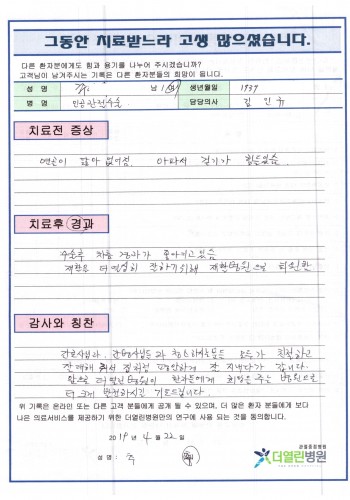 그동안 치료받느라 고생 많으셨습니다.
다른 환자분에게도 힘과 용기를 나누어 주시겠습니까?
고객님이 남겨주시는 기록은 다른 환자분들의 희망이 됩니다.
성 명 남 / 여 생년월일 1939
병 명 인공관절수술 담당의사 김 민 규
치료전 증상
연골이 많이 없어져. 아파서 걷기가 힘들었음.
치료후 경과
수술후 차츰 경과가 좋아지고 있음
재활은 더 열심히 잘하기위해 재활병원으로 퇴원함
감사와 칭찬
간호사님과, 모두가 친절하고
잘 대해 줘서 편안하게 잘 지냈다가 갑니다.
앞으로 더 열린병원이 환자들에게 희망을 주는 병원으로
더 크게 발전하시길 기도드립니다.
위 기록은 온라인 또는 다른 고객 분들에게 공개 될 수 있으며, 더 많은 환자 분들에게 보다
나은 의료서비스를 제공하기 위한 더열린병원만의 연구에 사용 되는 것을 동의합니다.
2019 년 4 월 22 일
성 명 : 주
관절중점병원
더열린병원